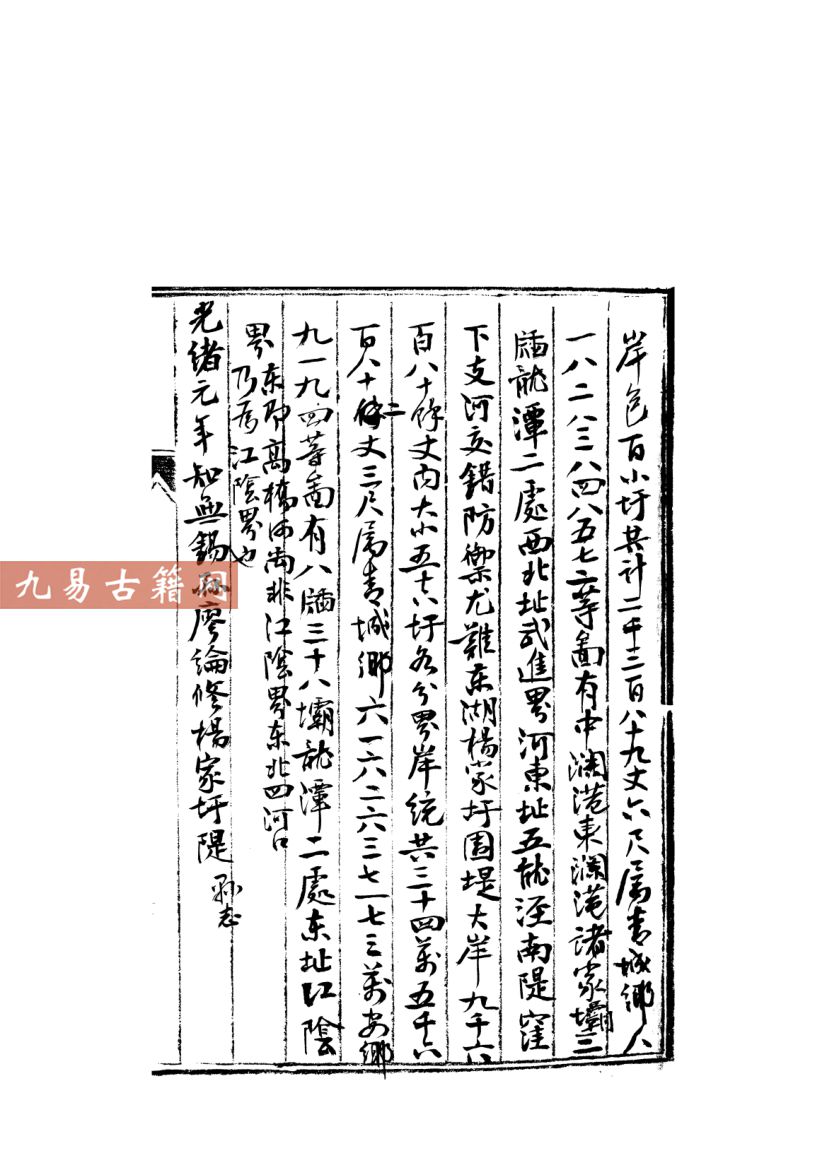 岸包百小圩共计二千三百八十九丈六尺属青城鄉八
一八二八三八四八五七二等啚有中澜港東澜港諸家壩三
牐龍潭二處西北址武進界河東址五龍泾南隄窪
下支河交錯防禦尤難东湖楊家圩围堤大岸九千六
百八十餘丈内大小五十八圩各分界岸統共三十四萬五千六
百八十二丈三尺属青城鄉六一六二六三七一七三萬安鄉
九一九四等啚有八牐三十八壩龍潭二處东址江陰
界东即高橋河尚非江陰界东北四河口
乃為江陰界也
光绪元年知無錫縣廖綸修楊家圩隄 縣志
九易古籍网